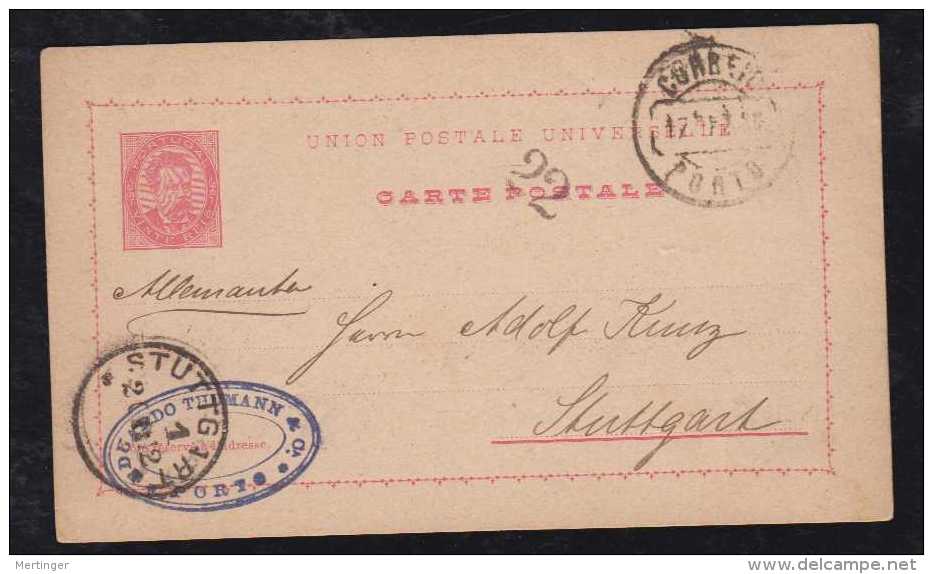 CORREIO
PORTO
UNION POSTALE UNIVERSELLE
CARTE POSTALE
22
PORTUGAL
VINTE REIS
Herrn Adolf Kunz
Stuttgart
STUTTGART
THUMANN & Cº.
PORTO
réservé à l'adresse.
Mertinger
www.delcampe.net